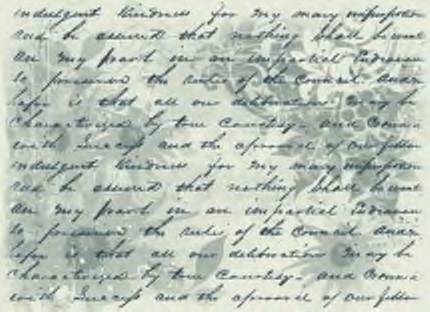 indulgent kindness for my many imperfection
and be assured that nothing shall be want
on my part in an impartial Endeavor
to preserve the rules of the Council. And
hope is that all our deliberations may be
characterized by true Courtesy, and
with Success and the approval of our fellow
indulgent kindness for my many imperfection
and be assured that nothing shall be want
on my part in an impartial Endeavor
to preserve the rules of the Council. And
hope is that all our deliberations may be
characterized by true Courtesy, and
with Success and the approval of our fellow